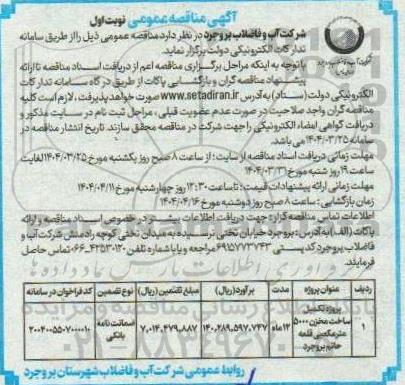 آگهی مناقصه عمومی نوبت اول
شرکت آب و فاضلاب بروجرد در نظر دارد مناقصه عمومی ذیل را از طریق سامانه
تدارکات الکترونیکی دولت برگزار نماید.
با توجه به اینکه مراحل برگزاری مناقصه اعم از دریافت اسناد مناقصه تا ارائه
پیشنهاد مناقصه گران و بازگشایی پاکات از طریق درگاه سامانه تدارکات
الکترونیکی دولت (ستاد) به آدرس www.setadiran.ir صورت خواهد پذیرفت، لازم است کلیه
مناقصه گران واجد صلاحیت در صورت عدم عضویت قبلی، مراحل ثبت نام در سایت مذکور و
دریافت گواهی امضاء الکترونیکی را جهت شرکت در مناقصه محقق سازند. تاریخ انتشار مناقصه در
سامانه ۱۴۰۴/۰۳/۲۵ می باشد.
مهلت زمانی دریافت اسناد مناقصه از سایت: از ساعت ۸ صبح روز یکشنبه مورخ ۱۴۰۴/۰۳/۲۵ لغایت
ساعت ۱۹ روز شنبه مورخ ۱۴۰۴/۰۳/۳۱
مهلت زمانی ارائه پیشنهادات قیمت: تا ساعت ۱۳:۳۰ روز چهارشنبه مورخ ۱۴۰۴/۰۴/۱۱
زمان بازگشایی: ساعت ۸ صبح روز دوشنبه مورخ ۱۴۰۴/۰۴/۱۶
اطلاعات تماس مناقصه گزار: جهت دریافت اطلاعات بیشتر در خصوص اسناد مناقصه و ارائه
پاکات (الف) به آدرس: بروجرد خیابان تختی نرسیده به میدان تختی کوچه رادمنش شرکت آب و
فاضلاب بروجرد کد پستی ۶۹۱۵۷۷۳۷۴۳ مراجعه و یا با شماره تلفن ۴۲۵۳۰۱۲۰-۰۶۶ تماس حاصل
فرمایند.
ردیف پروژه مدت برآورد (ریال) مبلغ تضمین (ریال) نوع تضمین کد فراخوان در سامانه
۱ پروژه تکمیل ساخت مخزن ۵۰۰۰ مترمکعبی قلعه حاتم بروجرد ۱۲ ماه ۱۴۰،۲۸۹،۵۹۷،۷۴۷ ۷،۰۱۴،۴۷۹،۸۸۷ ضمانت نامه بانکی ۲۰۰۴۰۰۵۵۰۷۰۰۰۰۱۰
روابط عمومی شرکت آب و فاضلاب شهرستان بروجرد